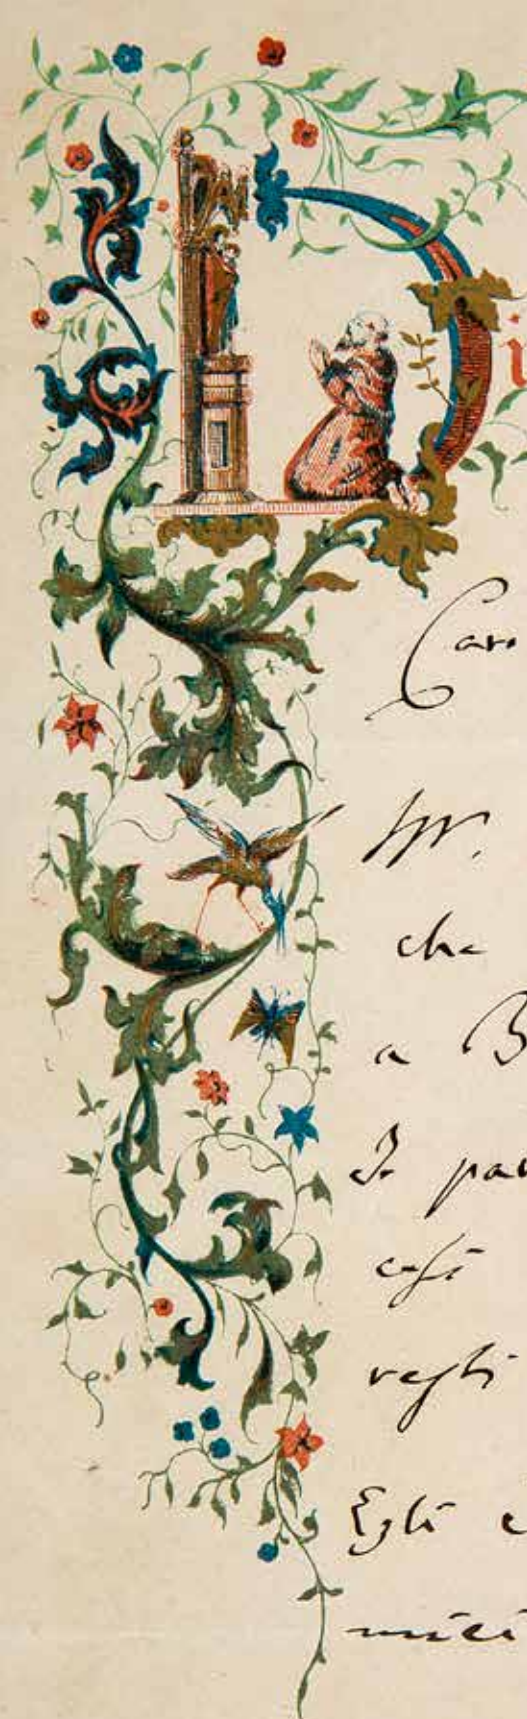 Di
Caro
W.
che
a B
Io pav
così
resti
Egli è
miei